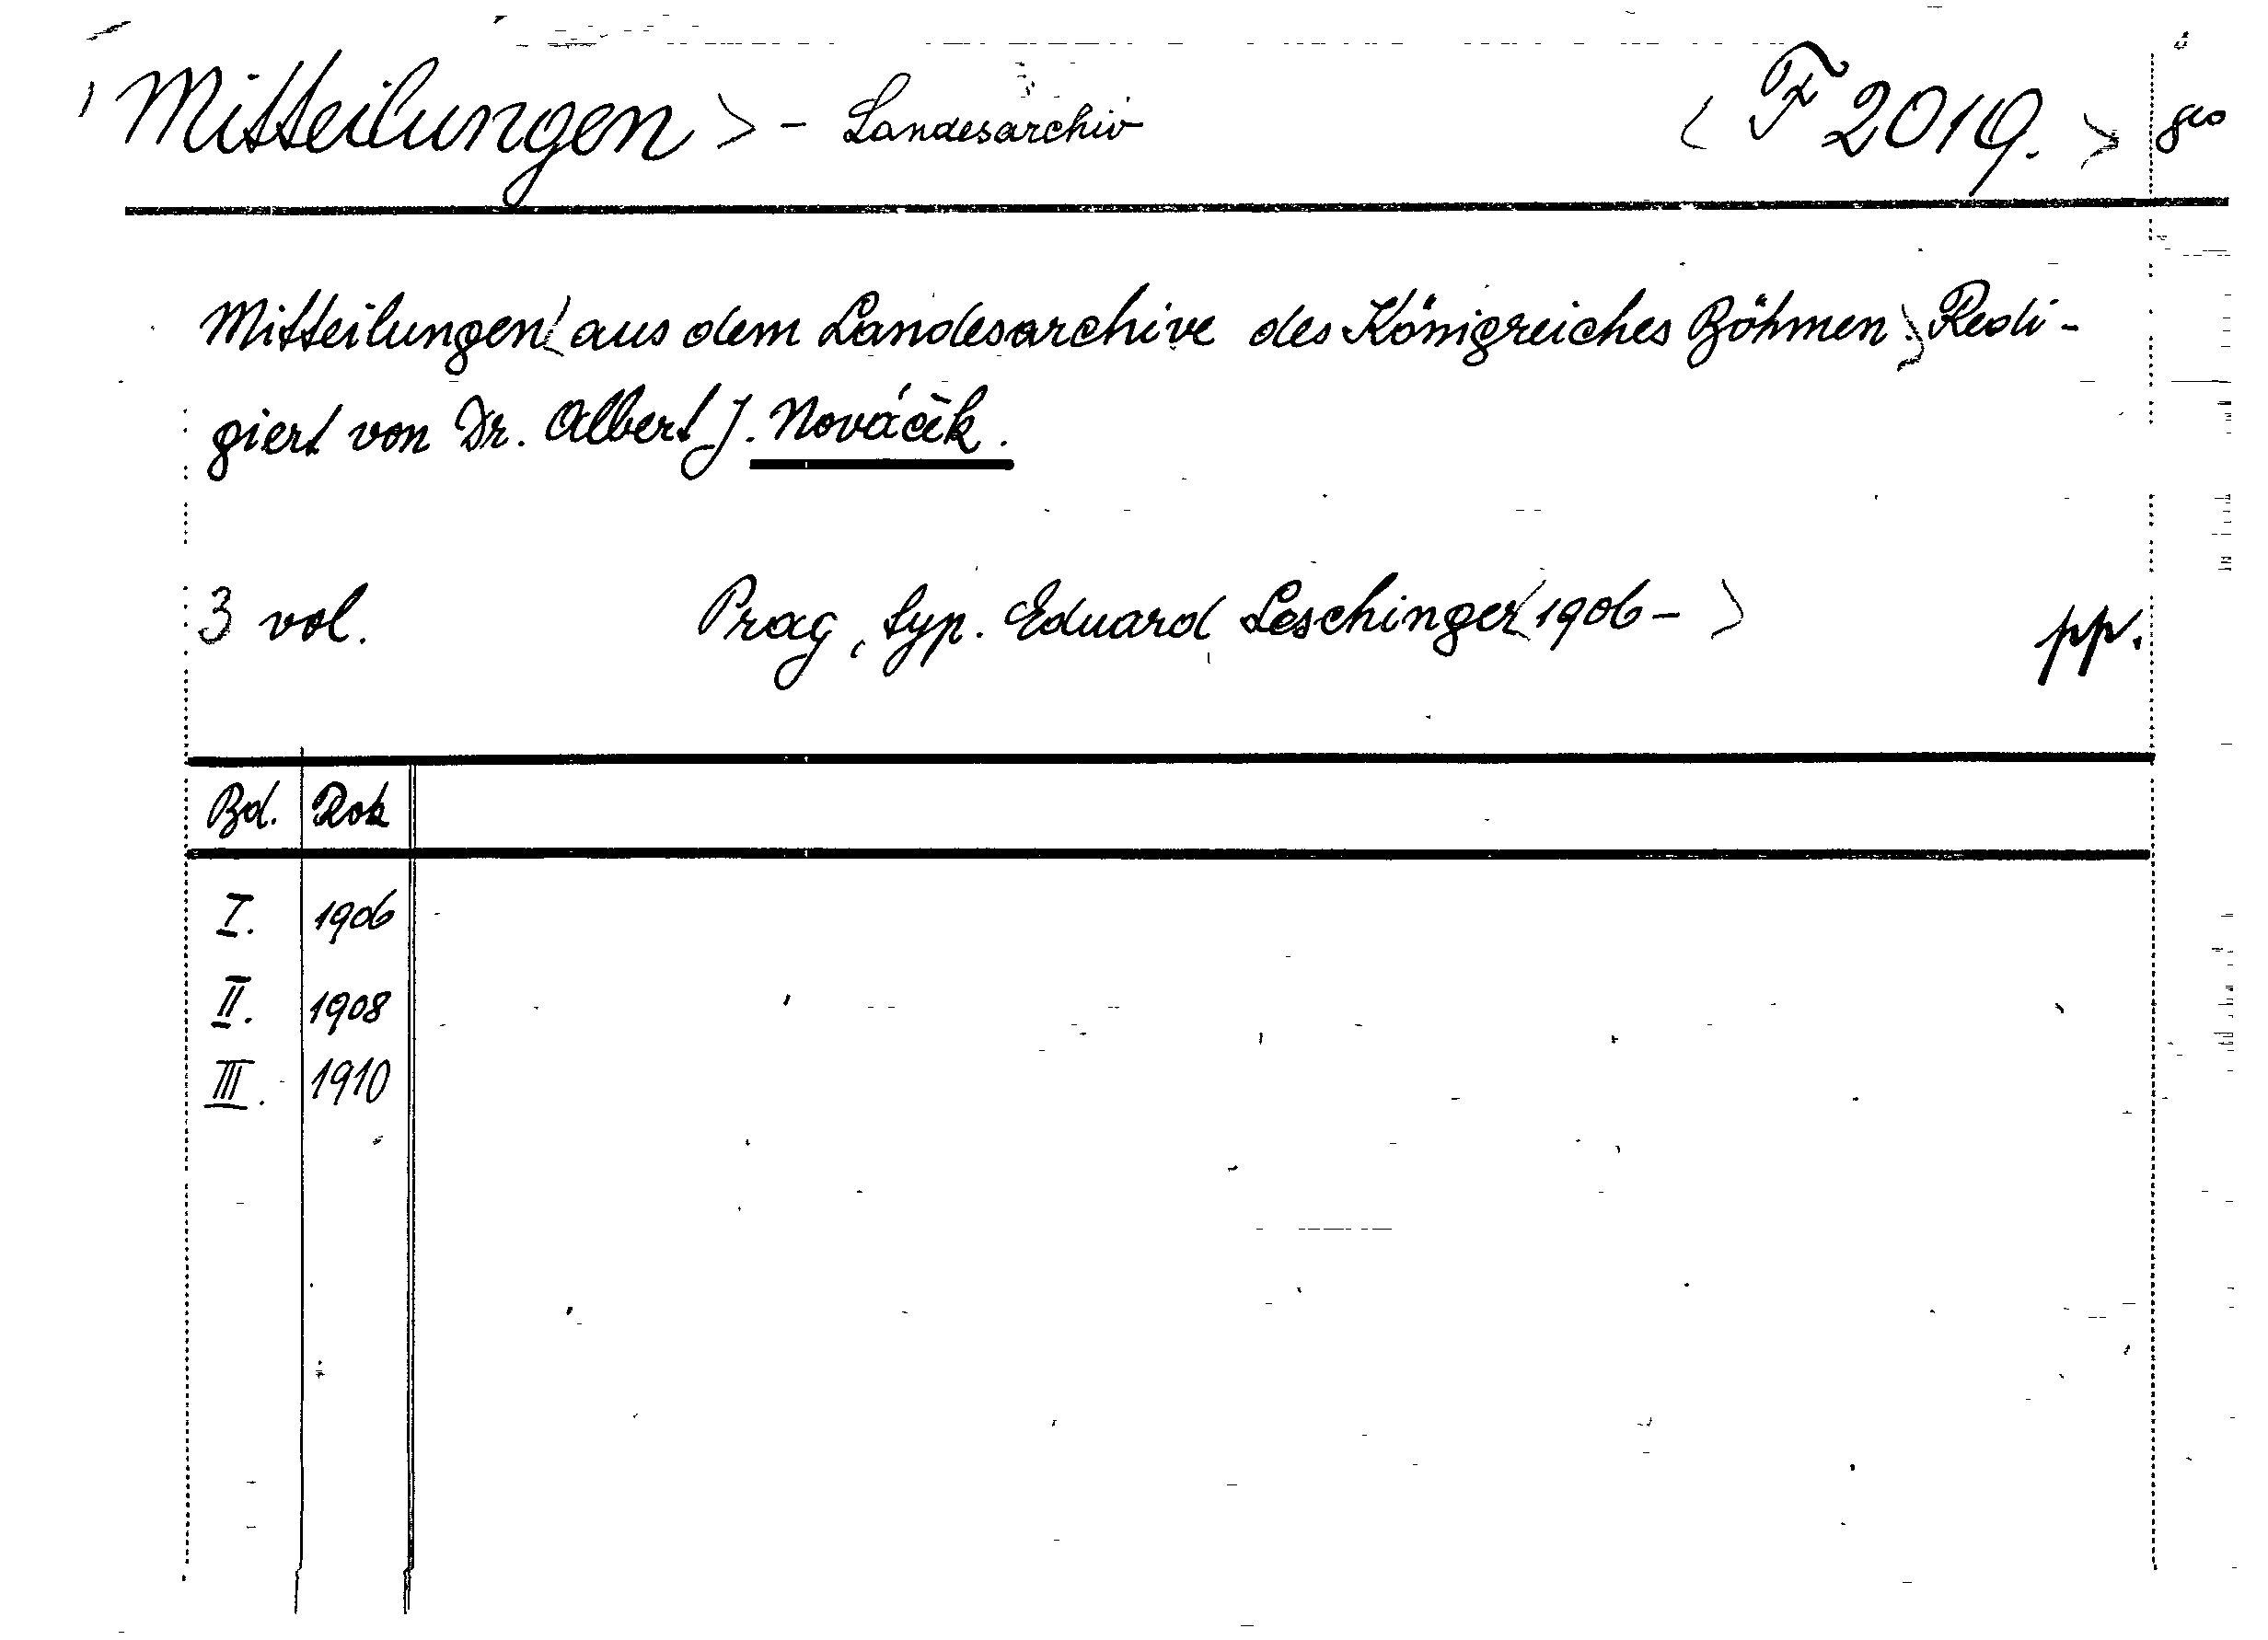 Mitteilungen > - Landesarchiv < F 2019. > 8co
Mitteilungen < aus dem Landesarchive des Königreiches Böhmen. > Redi-
giert von Dr. Albert J. Nováček.
3 vol. Prag, typ. Eduard Leschinger < 1906 - > pp.
Bd. Rok
I. 1906
II. 1908
III. 1910